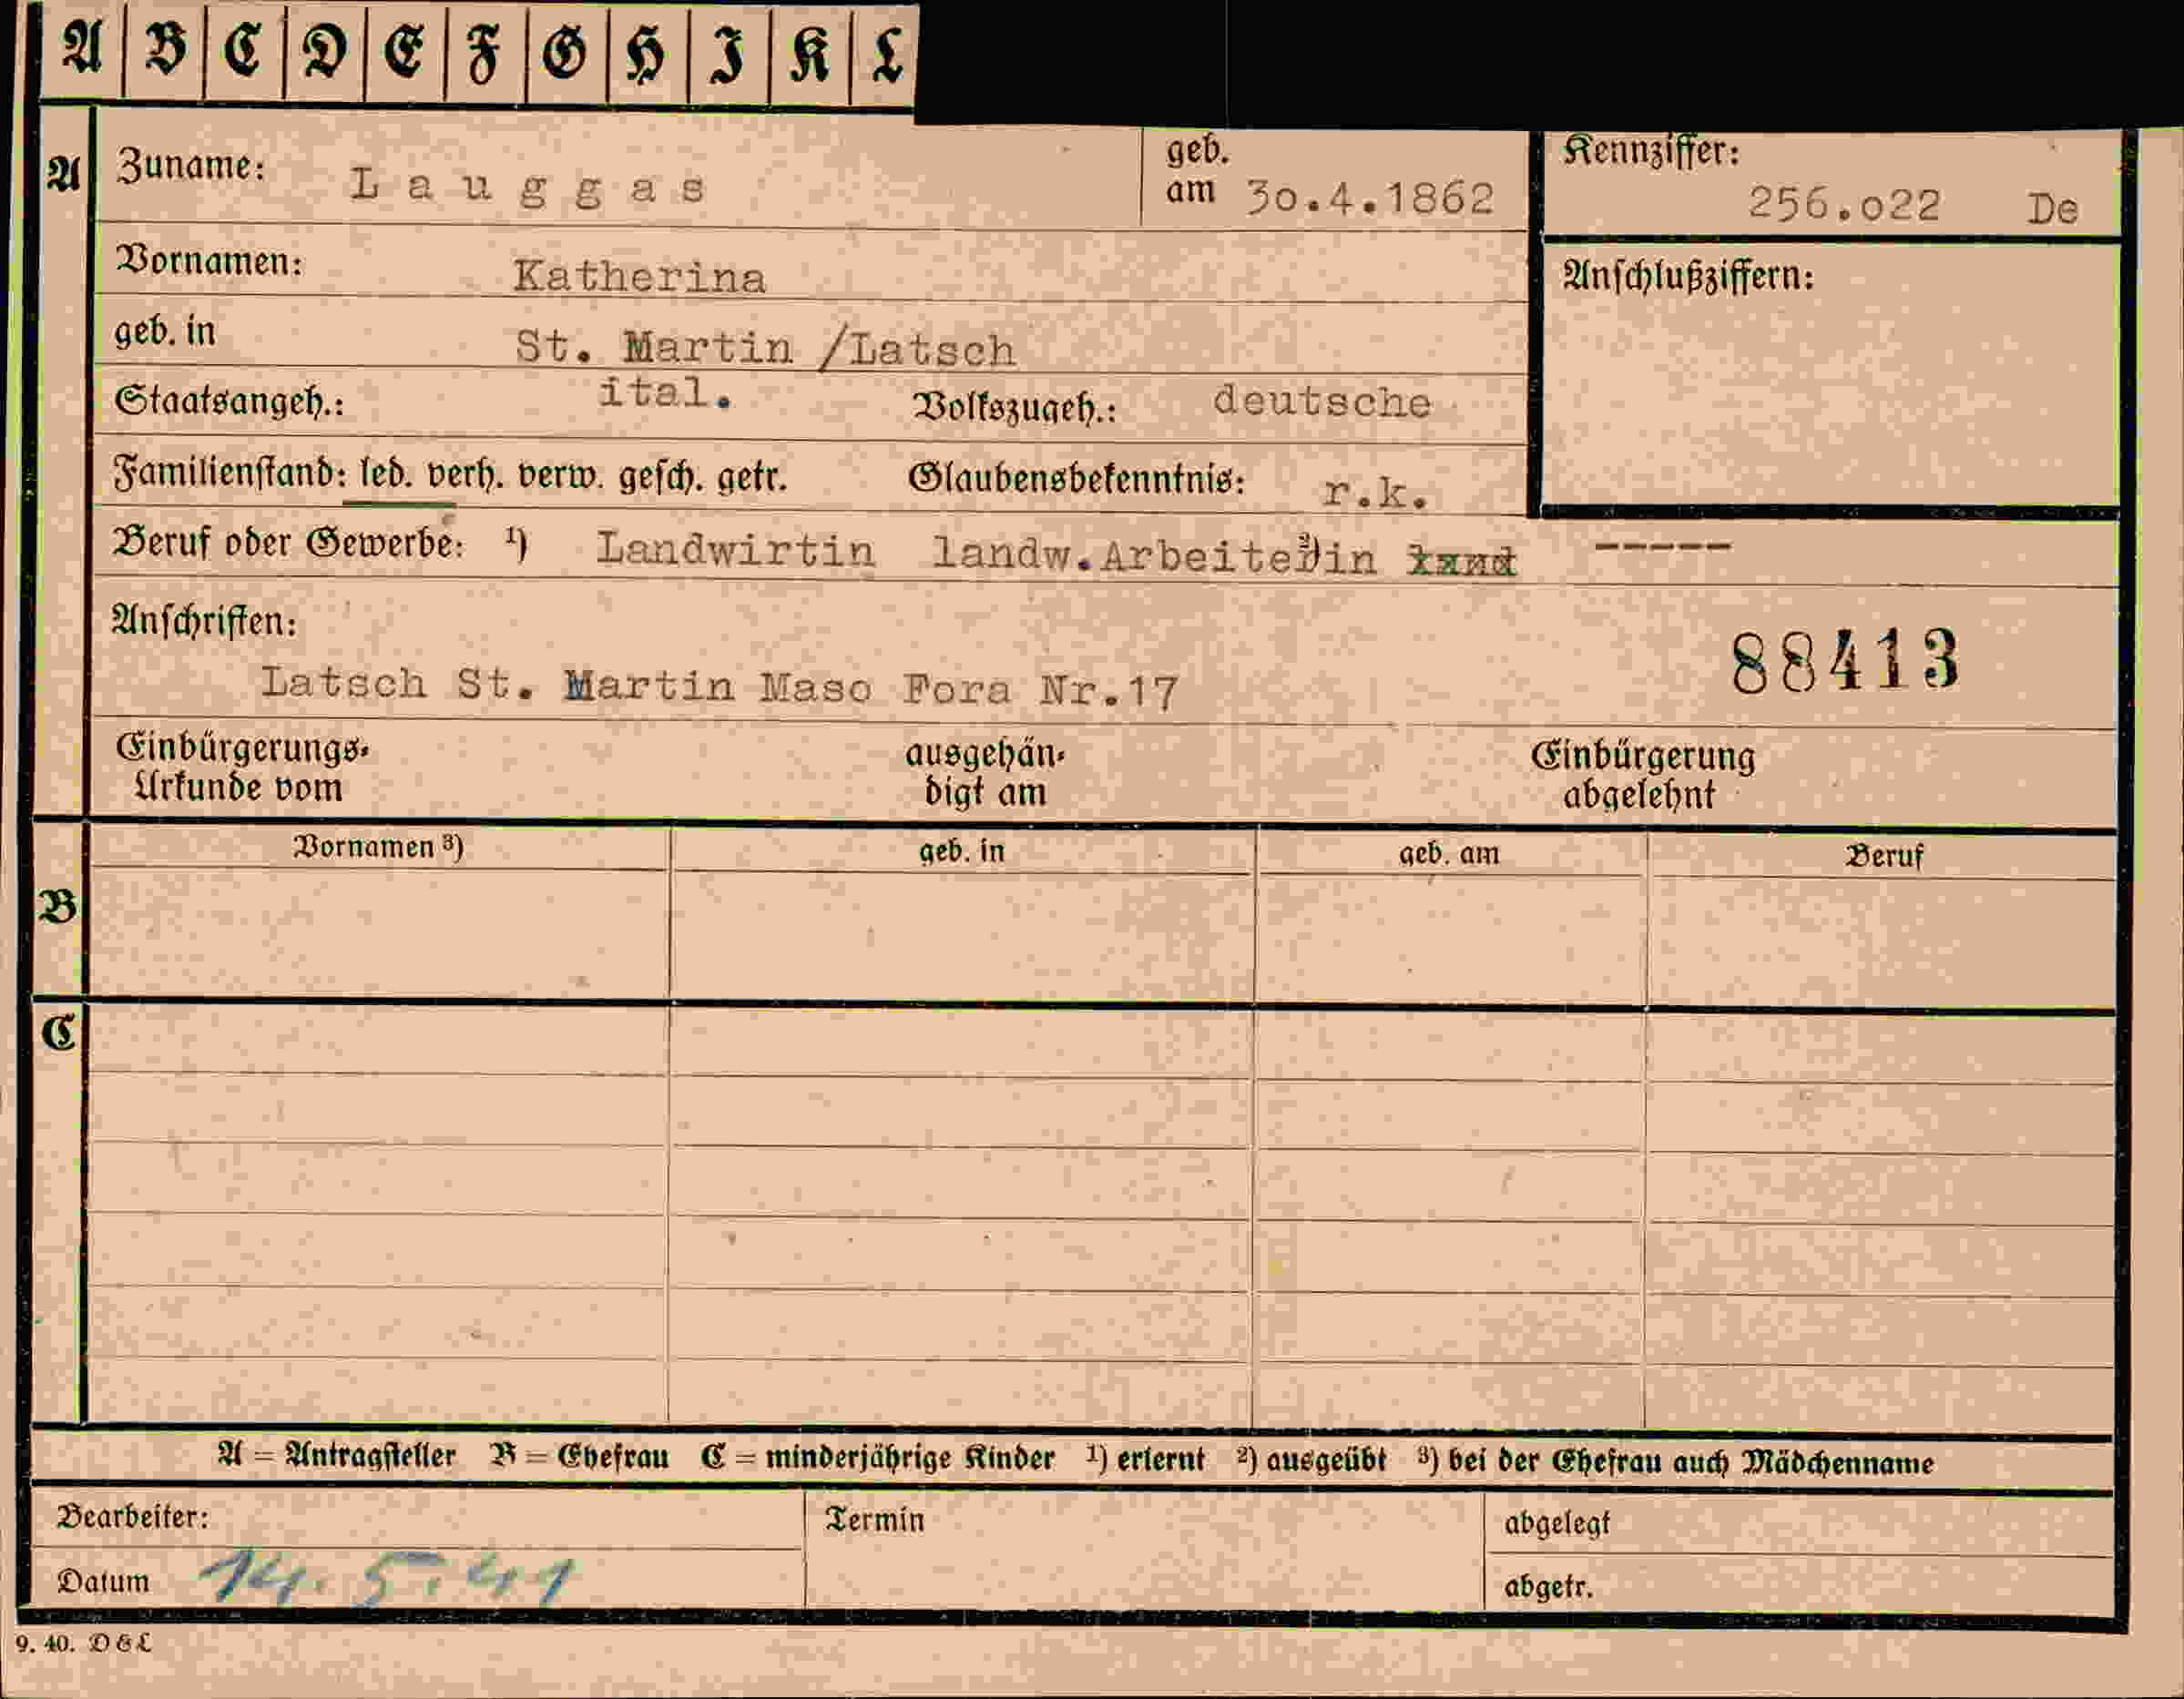 A B C D E F G H I K L
A Zuname: Lauggas geb. am 30.4.1862 Kennziffer: 256.022 De
Vornamen: Katherina Anschlußziffern:
geb. in St. Martin /Latsch
Staatsangeh.: ital. Volkszugeh.: deutsche
Familienstand: led. verh. verw. gesch. getr. Glaubensbekenntnis: r.k.
Beruf oder Gewerbe: 1) Landwirtin landw.Arbeiterin 2) -----
Anschriften:
88413
Latsch St. Martin Maso Fora Nr.17
Einbürgerungs- ausgehän- Einbürgerung
Urkunde vom digt am abgelehnt
Vornamen 3) geb. in geb. am Beruf
B
C
A = Antragsteller B = Ehefrau C = minderjährige Kinder 1) erlernt 2) ausgeübt 3) bei der Ehefrau auch Mädchenname
Bearbeiter: Termin abgelegt
Datum 14.5.41 abgetr.
9. 40. D & L